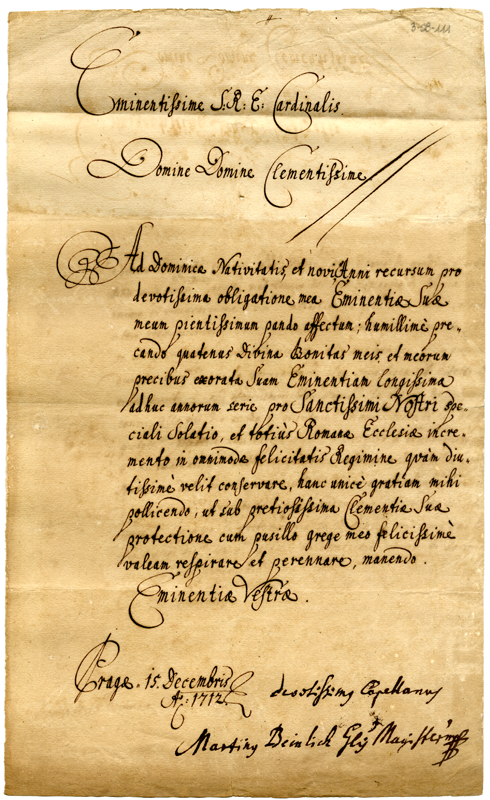 3-28-111
Eminentissime S: R: E: Cardinalis.
Domine Domine Clementissime
Ad Dominicæ Nativitatis, et novi Anni recursum pro
devotissima obligatione mea Eminentiæ Suæ
meum pientissimum pando affectum; humillimè pre-
cando quatenus divina Bonitas meis, et meorum
precibus exorata Suam Eminentiam longissima
adhuc annorum serie pro Sanctissimi Nostri spe-
ciali Solatio, et totius Romanæ Ecclesiæ incre-
mento in omnimodæ felicitatis Regimine quàm diu-
tissimè velit conservare, hanc unicè gratiam mihi
pollicendo, ut sub pretiosissima Clementiæ Suæ
protectione cum pusillo grege meo felicissimè
valeam respirare et perennare, manendo.
Eminentiæ Vestræ.
Pragæ. 15. Decembris
Aõ: 1712.
devotissimus Capellanus
Martinus Beinlich Glis Magister